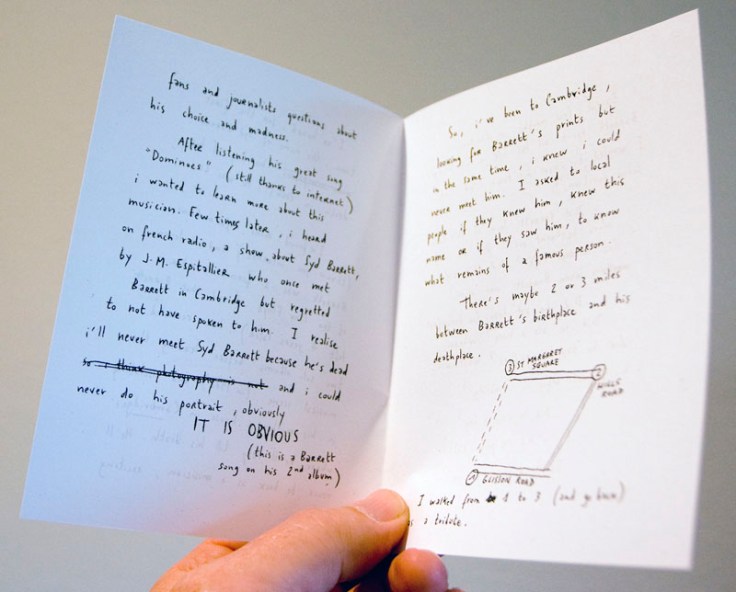 fans and journalists questions about
his choice and madness.
After listening his great song
"Dominoes" (still thanks to internet)
i wanted to learn more about this
musician. Few times later, i heard
on french radio, a show, about Syd Barrett,
by J-M. Espitallier who once met
Barrett in Cambridge but regretted
to not have spoken to him. I realise
i'll never meet Syd Barrett because he's dead
so i think photography is not and i could
never do his portrait, obviously
IT IS OBVIOUS
(this is a Barrett
song on his 2nd album)
So, i've been to Cambridge,
looking for Barrett's prints but
in the same time, i knew i could
never meet him. I asked to local
people if they knew him, knew this
name or if they saw him, to know
what remains of a famous person.
There's maybe 2 or 3 miles
between Barrett's birthplace and his
deathplace.
3 ST MARGARET
SQUARE
2
HILLS
ROAD
1 GLISSON ROAD
I walked from 1 to 3
as a tribute.